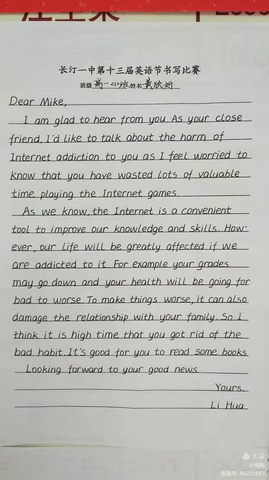 长汀一中第十三届英语节书写比赛
班级 姓名
Dear Mike,
I am glad to hear from you. As your close
friend, I'd like to talk about the harm of
Internet addiction to you as I feel worried to
know that you have wasted lots of valuable
time playing the Internet games.
As we know, the Internet is a convenient
tool to improve our knowledge and skills. How-
ever, our life will be greatly affected if we
are addicted to it. For example your grades
may go down and your health will be going for
bad to worse. To make things worse, it can also
damage the relationship with your family. So I
think it is high time that you got rid of the
bad habit. It's good for you to read some books.
Looking forward to your good news.
Yours,
Li Hua